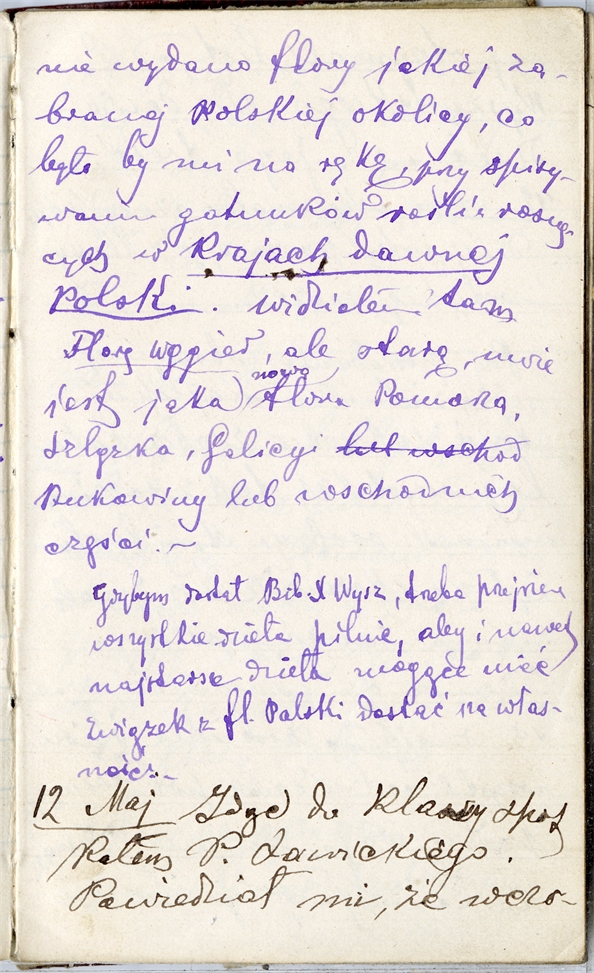 nie wydano flory jakiej za-
branej Polskiej okolicy, co
było by mi na rękę, przy spisy-
waniu gatunków roślin rosną
cych w Krajach dawnej
Polski. widziałem tam
Florę Węgier, ale starą, może
jest jaka nowa flora Pomorza,
Szlązka, Galicyi lub wschod
Bukowiny lub wschodnich
części. —
Gdybym dostał Bib. X Wysz, trzeba przejrzeć
wszystkie dzieła pilnie, aby i nawet
najstarsze dzieła mogące mieć
związek z fl. Polski dostać na włas-
ność. -
12 Maj Idąc do Klassy spot
kałem P. Ławickiego.
Powiedział mi, że wczo-